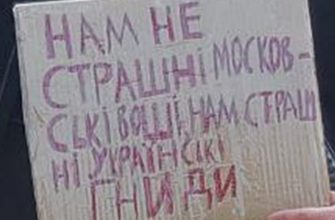 НАМ НЕ
СТРАШНІ МОСКОВ-
СЬКІ ВОШІ, НАМ СТРАШ
НІ УКРАЇНСЬКІ
ГНИДИ